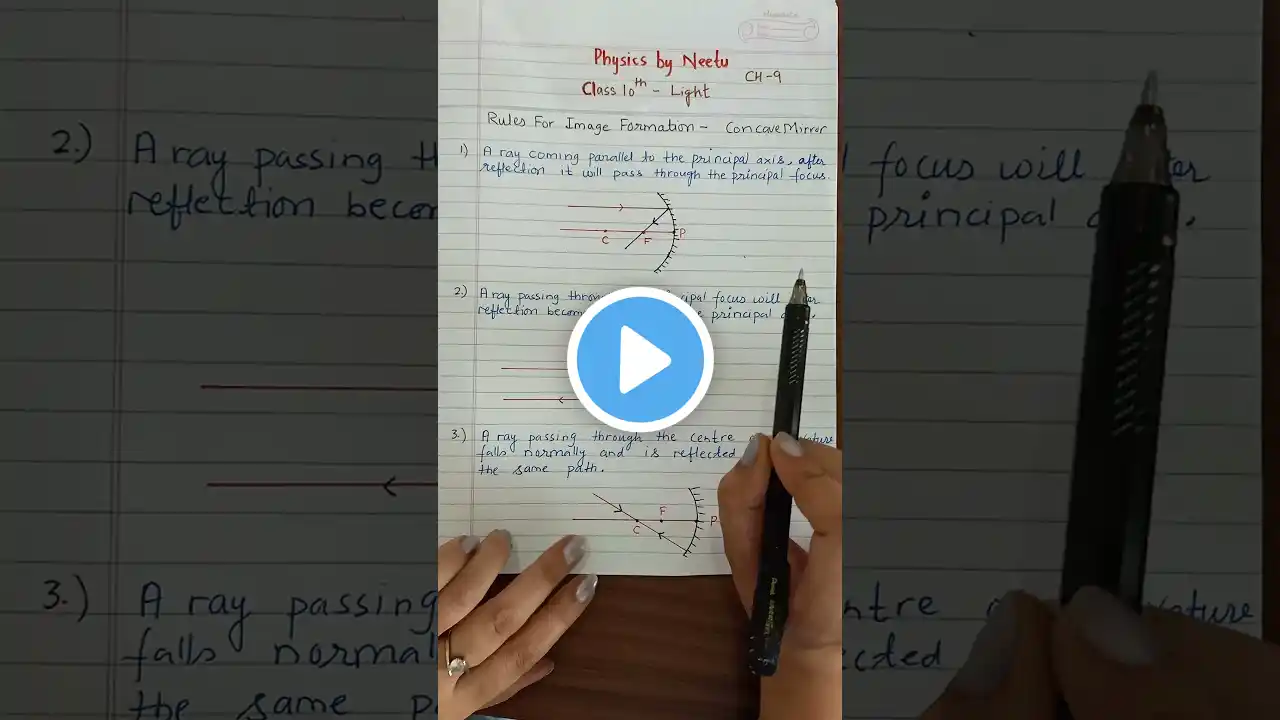 Physics by Neetu
CH-9
Class 10th - Light
Rules For Image Formation - Concave Mirror
1) A ray coming parallel to the principal axis, after
reflection it will pass through the principal focus.
C F P
2) A ray passing cipal focus will
reflection principal
3.) A ray passing through the centre
falls normally and is reflected
the same path.
F
C
P
2.) A ray passing focus will
reflection principal
3.) A ray passing
falls
the same